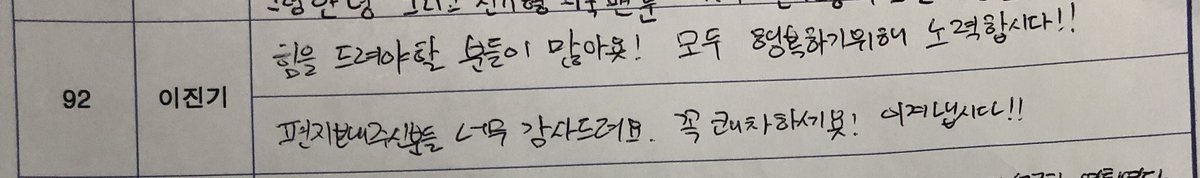 그럼 안녕
92
이진기
힘을 드려야할 분들이 많아욧! 모두 행복하기위해 노력합시다!!
편지보내주신분들 너무 감사드려요. 꼭 쾌차하세욧! 이겨냅시다!!